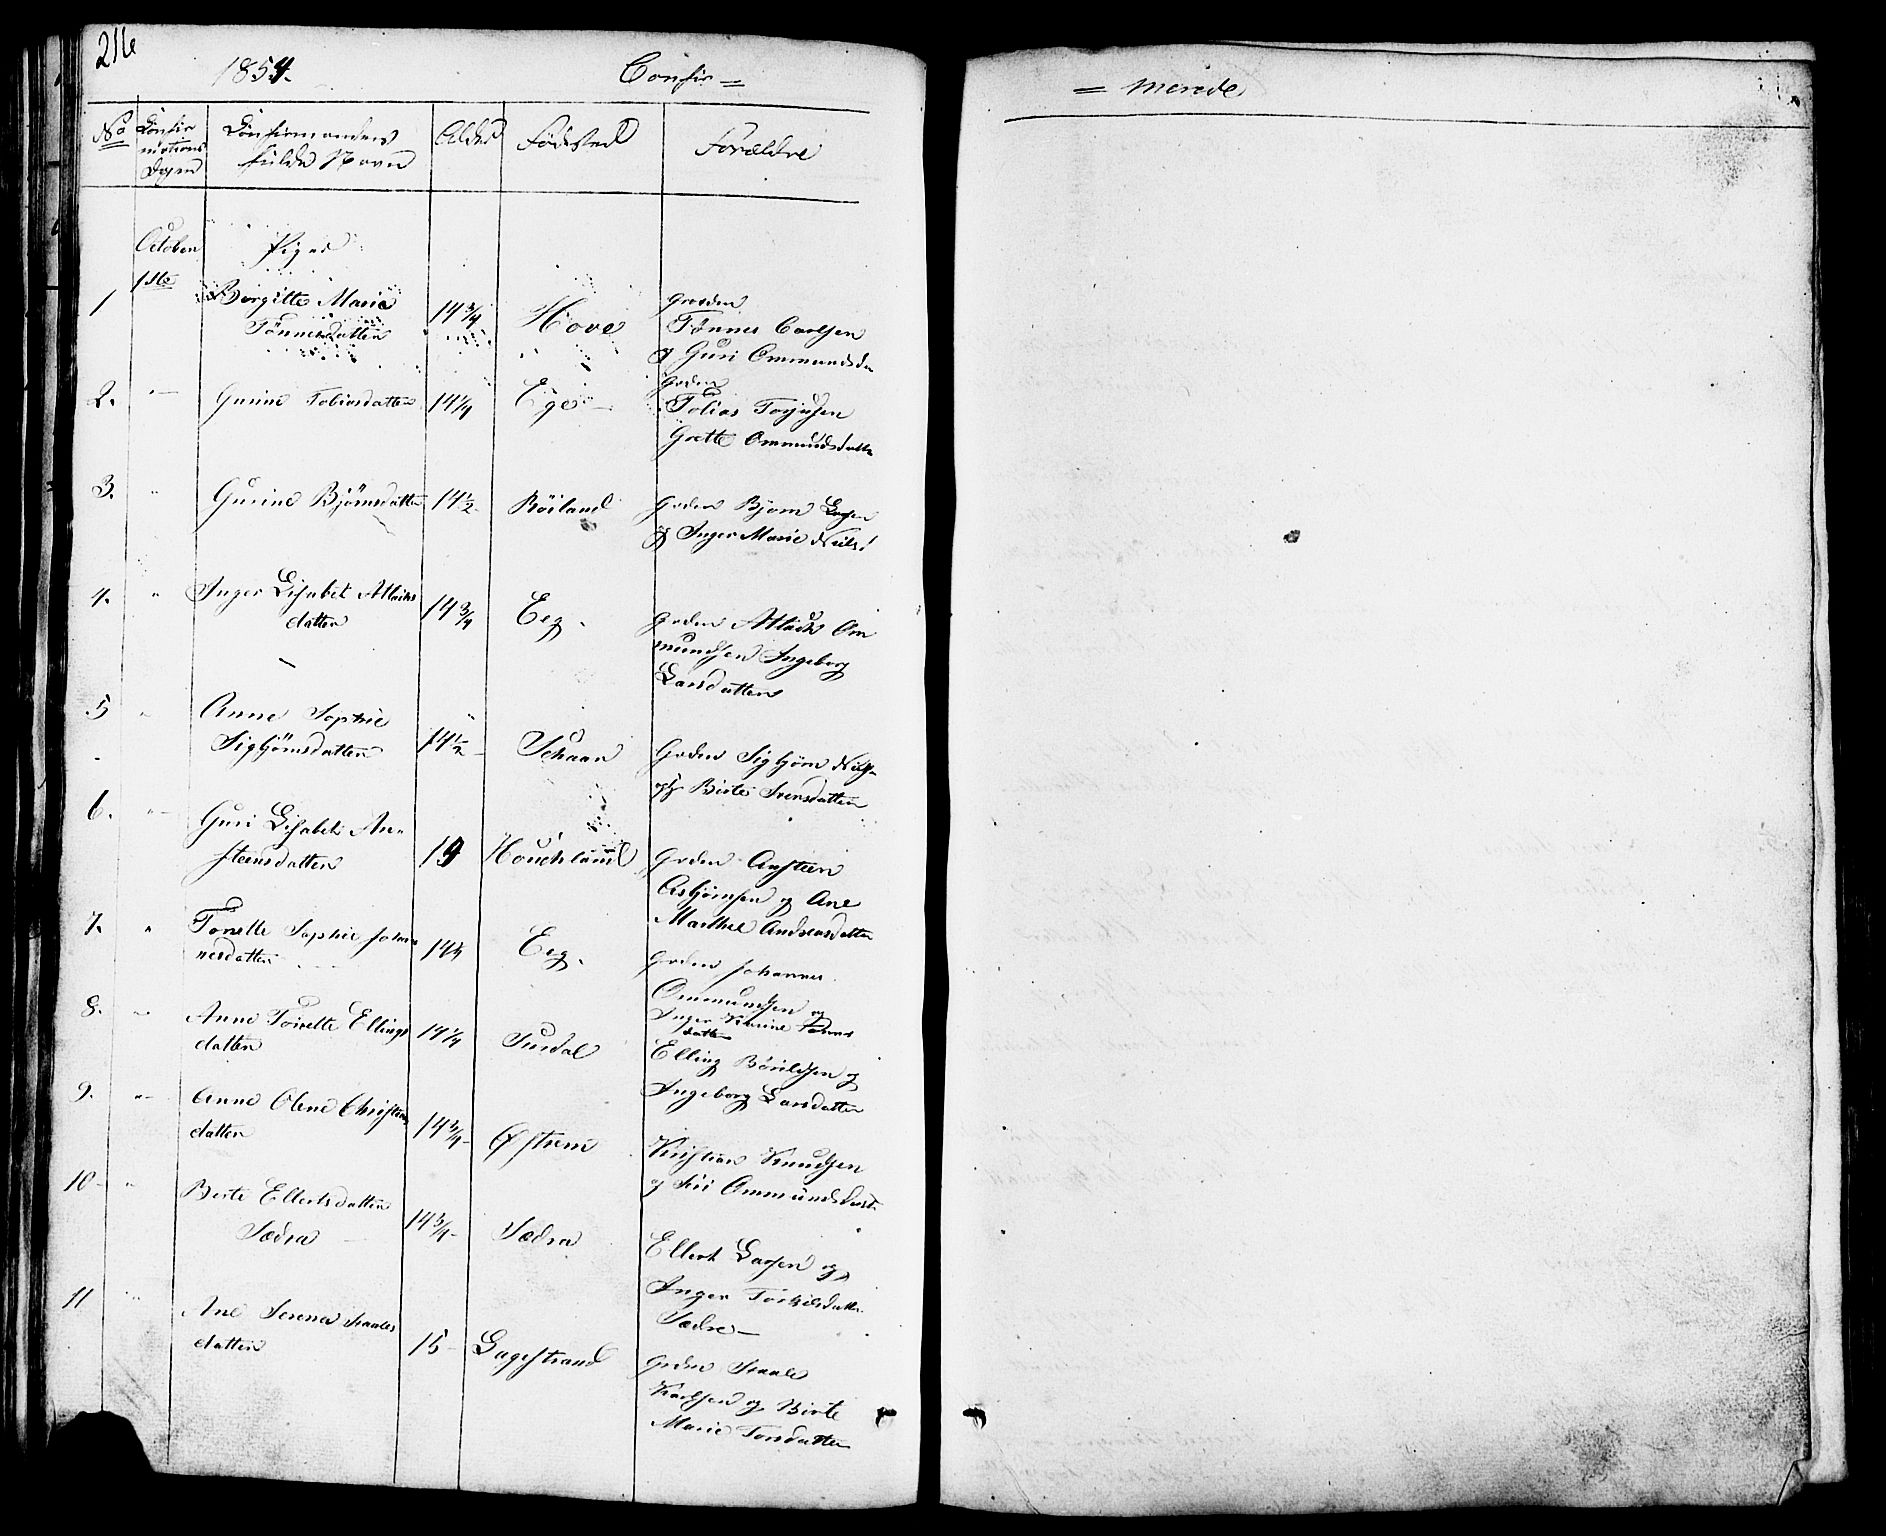 216
1854.
Confir =
= merede
No
Confir
mations
Dagen
Confirmandens
fulde Navn
Alder
Fødested
Forældre
October
1ste
Piger
1
Bergitte Maria
Tönnesdatter
14 3/4
Hove
Gaarden
Tønnes Carlsen
og Guri Ommundsd
2.
Gurine Tobiasdatter
14 1/4
Ege
Tobias Torjusen
Grette Ommundsdatter
3.
Gurine Bjömsdatter
14 1/2
Röiland
Bjørn
og Inger Marie Nielsd
4.
Inger Lisabet Atlaks
datter
14 3/4
Eeg.
Atlack Om
mundsen Ingeborg
Larsdatter
5
Anne Sophie
Sigbjörnsdatter
14 1/2
Schaar
Sigbjörn Niels
og Birte Svensdatter
6.
Guri Lisabet An=
steensdatter
14
Houchland
Ansteen
Asbjørnsen og Ane
Marthe Andreasdatter
7.
Tonette Sophie Johan
nesdatter
14 1/4
Eeg.
Johannes
Ommundsen og
Inger Karine
datter
8.
Anne Toinette Ellings
datter
14 1/4
Surdal
Elling Bårdsen og
Ingeborg Larsdatter
9.
Anne Olene Christians
datter
14 3/4
Øystrem
Kristian Knudsen
og Siri Ommundsdatt
10
Berte Ellertsdatter
Sædra
14 3/4
Sædra
Ellert Larsen og
Inger Torkelsdatter
Sædre
11
Ane Serena Staales
datter
15
Lagestrand
Staale
Karlsen og Birte
Marie Torsdatter